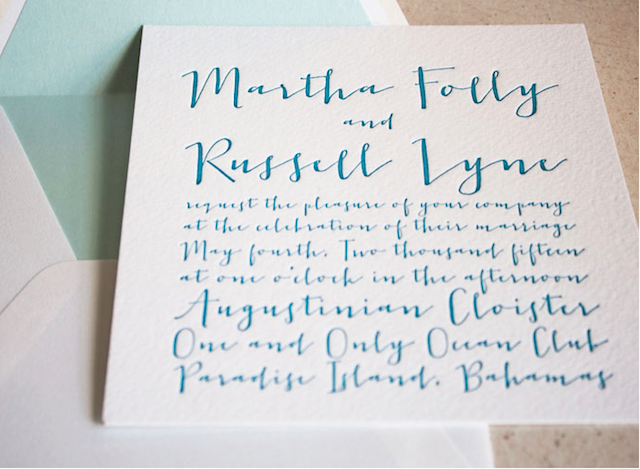 Martha Folly
and
Russell Lyne
request the pleasure of your company
at the celebration of their marriage
May fourth, Two thousand fifteen
at one o'clock in the afternoon
Augustinian Cloister
One and Only Ocean Club
Paradise Island, Bahamas